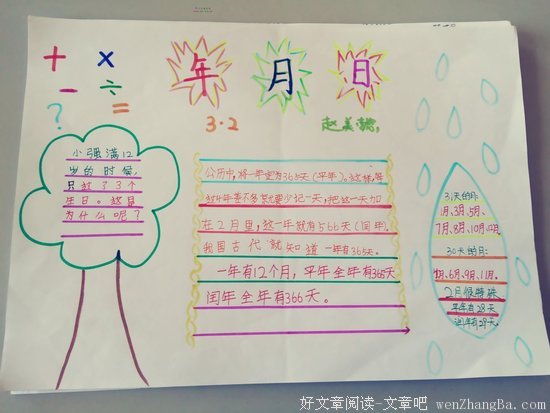 + × - ÷ ? =
年 月 日
3·2
赵美
小强满12
岁的时候,
只过了3个
生日。这是
为什么呢?
公历中,将一年定为365天(平年)。这样,每
过4年差不多就要少记一天,把这一天加
在2月里,这一年就有566天(闰年)。
我国古代就知道一年有365天。
一年有12个月,平年全年有365天
闰年全年有366天。
31天的月:
1月、3月、5月、
7月、8月、10月、12月
30天的月:
4月、6月、9月、11月。
2月很特殊
平年有28天
闰年有29天。
好文章阅读-文章吧 wenZhangBa.com